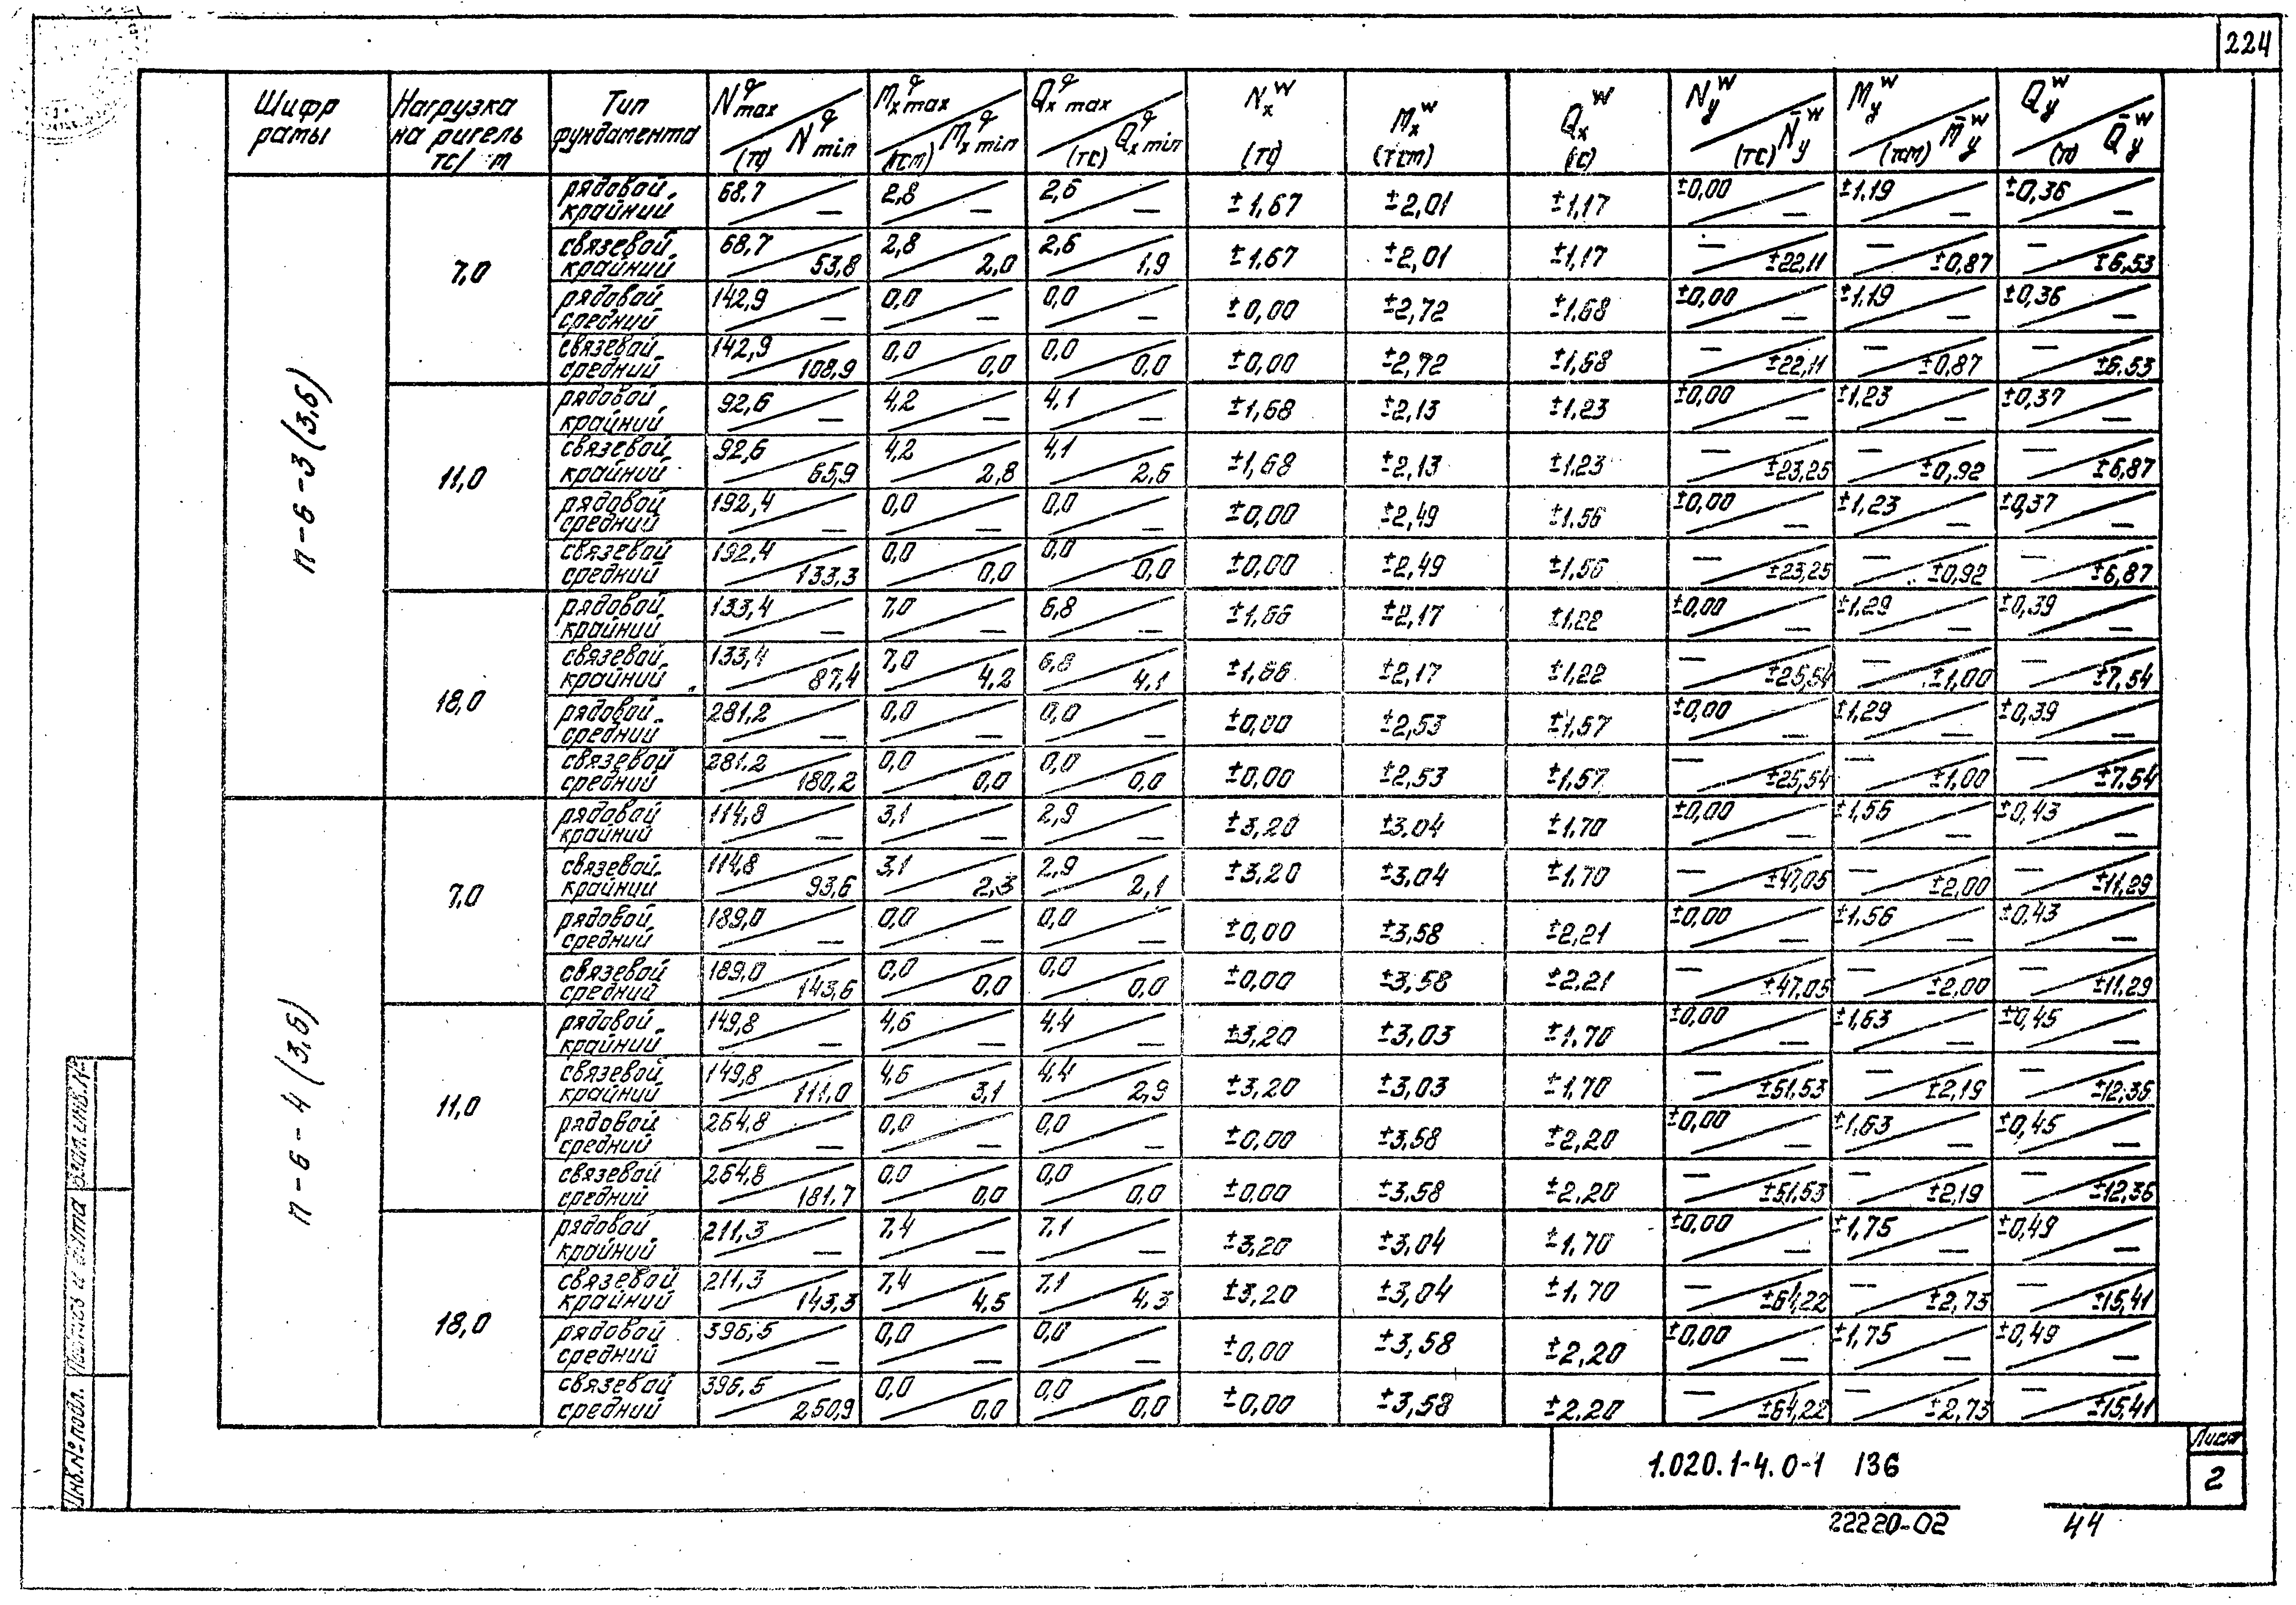 224
Шифр рамы | Нагрузка на ригель тс/м | Тип фундамента | N^q max / N^q min (тс) | M^q x max / M^q x min (тсм) | Q^q x max / Q^q x min (тс) | N^w x (тс) | M^w x (тсм) | Q^w x (тс) | N^w y / N̄^w y (тс) | M^w y / M̄^w y (тсм) | Q^w y / Q̄^w y (тс)
п-6-3 (3,6)
7,0
рядовой крайний | 68,7 / — | 2,8 / — | 2,6 / — | ±1,67 | ±2,01 | ±1,17 | ±0,00 / — | ±1,19 / — | ±0,36 / —
связевой крайний | 68,7 / 53,8 | 2,8 / 2,0 | 2,6 / 1,9 | ±1,67 | ±2,01 | ±1,17 | — / ±22,11 | — / ±0,87 | — / ±6,53
рядовой средний | 142,9 / — | 0,0 / — | 0,0 / — | ±0,00 | ±2,72 | ±1,68 | ±0,00 / — | ±1,19 / — | ±0,36 / —
связевой средний | 142,9 / 108,9 | 0,0 / 0,0 | 0,0 / 0,0 | ±0,00 | ±2,72 | ±1,68 | — / ±22,11 | — / ±0,87 | — / ±6,53
11,0
рядовой крайний | 92,6 / — | 4,2 / — | 4,1 / — | ±1,68 | ±2,13 | ±1,23 | ±0,00 / — | ±1,23 / — | ±0,37 / —
связевой крайний | 92,6 / 65,9 | 4,2 / 2,8 | 4,1 / 2,6 | ±1,68 | ±2,13 | ±1,23 | — / ±23,25 | — / ±0,92 | — / ±6,87
рядовой средний | 192,4 / — | 0,0 / — | 0,0 / — | ±0,00 | ±2,49 | ±1,56 | ±0,00 / — | ±1,23 / — | ±0,37 / —
связевой средний | 192,4 / 133,3 | 0,0 / 0,0 | 0,0 / 0,0 | ±0,00 | ±2,49 | ±1,56 | — / ±23,25 | — / ±0,92 | — / ±6,87
18,0
рядовой крайний | 133,4 / — | 7,0 / — | 6,8 / — | ±1,66 | ±2,17 | ±1,22 | ±0,00 / — | ±1,29 / — | ±0,39 / —
связевой крайний | 133,4 / 87,4 | 7,0 / 4,2 | 6,8 / 4,1 | ±1,66 | ±2,17 | ±1,22 | — / ±25,54 | — / ±1,00 | — / ±7,54
рядовой средний | 281,2 / — | 0,0 / — | 0,0 / — | ±0,00 | ±2,53 | ±1,57 | ±0,00 / — | ±1,29 / — | ±0,39 / —
связевой средний | 281,2 / 180,2 | 0,0 / 0,0 | 0,0 / 0,0 | ±0,00 | ±2,53 | ±1,57 | — / ±25,54 | — / ±1,00 | — / ±7,54
п-6-4 (3,6)
7,0
рядовой крайний | 114,8 / — | 3,1 / — | 2,9 / — | ±3,20 | ±3,04 | ±1,70 | ±0,00 / — | ±1,56 / — | ±0,43 / —
связевой крайний | 114,8 / 93,6 | 3,1 / 2,3 | 2,9 / 2,1 | ±3,20 | ±3,04 | ±1,70 | — / ±47,05 | — / ±2,00 | — / ±11,29
рядовой средний | 189,0 / — | 0,0 / — | 0,0 / — | ±0,00 | ±3,58 | ±2,21 | ±0,00 / — | ±1,56 / — | ±0,43 / —
связевой средний | 189,0 / 143,6 | 0,0 / 0,0 | 0,0 / 0,0 | ±0,00 | ±3,58 | ±2,21 | — / ±47,05 | — / ±2,00 | — / ±11,29
11,0
рядовой крайний | 149,8 / — | 4,6 / — | 4,4 / — | ±3,20 | ±3,03 | ±1,70 | ±0,00 / — | ±1,63 / — | ±0,45 / —
связевой крайний | 149,8 / 111,0 | 4,6 / 3,1 | 4,4 / 2,9 | ±3,20 | ±3,03 | ±1,70 | — / ±51,53 | — / ±2,19 | — / ±12,36
рядовой средний | 264,8 / — | 0,0 / — | 0,0 / — | ±0,00 | ±3,58 | ±2,20 | ±0,00 / — | ±1,63 / — | ±0,45 / —
связевой средний | 264,8 / 181,7 | 0,0 / 0,0 | 0,0 / 0,0 | ±0,00 | ±3,58 | ±2,20 | — / ±51,53 | — / ±2,19 | — / ±12,36
18,0
рядовой крайний | 211,3 / — | 7,4 / — | 7,1 / — | ±3,20 | ±3,04 | ±1,70 | ±0,00 / — | ±1,75 / — | ±0,49 / —
связевой крайний | 211,3 / 143,3 | 7,4 / 4,5 | 7,1 / 4,3 | ±3,20 | ±3,04 | ±1,70 | — / ±64,22 | — / ±2,73 | — / ±15,41
рядовой средний | 396,5 / — | 0,0 / — | 0,0 / — | ±0,00 | ±3,58 | ±2,20 | ±0,00 / — | ±1,75 / — | ±0,49 / —
связевой средний | 396,5 / 250,9 | 0,0 / 0,0 | 0,0 / 0,0 | ±0,00 | ±3,58 | ±2,20 | — / ±64,22 | — / ±2,73 | — / ±15,41
Инв.№ подл.
Подпись и дата
Взам. инв. №
1.020.1-4.0-1 136
Лист
2
22220-02
44